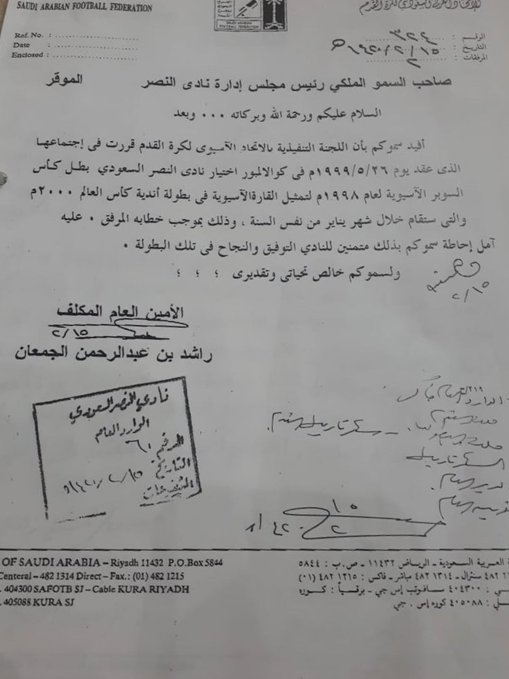 SAUDI ARABIAN FOOTBALL FEDERATION
Ref. No. :
Date :
Enclosed :
الرقم : ٣٢٤
التاريخ : ١٤٢٠/٢/١٥هـ
المرفقات : ٢
صاحب السمو الملكي رئيس مجلس إدارة نادى النصر الموقر
السلام عليكم ورحمة الله وبركاته ٠٠٠ وبعد
أفيد سموكم بأن اللجنة التنفيذية بالاتحاد الآسيوى لكرة القدم قررت فى إجتماعها
الذى عقد يوم ١٩٩٩/٥/٢٦م فى كوالالمبور اختيار نادى النصر السعودي بطل كأس
السوبر الآسيوية لعام ١٩٩٨م لتمثيل القارةالآسيوية فى بطولة أندية كأس العالم ٢٠٠٠م
والتى ستقام خلال شهر يناير من نفس السنة ، وذلك بموجب خطابه المرفق ٠ عليه
آمل إحاطة سموكم بذلك متمنين للنادي التوفيق والنجاح فى تلك البطولة ٠
ولسموكم خالص تحياتى وتقديرى ؛ ؛ ؛
٢/١٥
الأمين العام المكلف
٢/١٥
راشد بن عبدالرحمن الجمعان
نادي النصر السعودي
الوارد العام
الرقم
التاريخ
OF SAUDI ARABIA – Riyadh 11432 P.O.Box 5844
Centeral – 482 1314 Direct – Fax.: (01) 482 1215
. 404300 SAFOTB SJ – Cable KURA RIYADH
. 405088 KURA SJ
ة العربية السعودية ـ الرياض ١١٤٣٢ ـ ص.ب : ٥٨٤٤
سنترال ـ ٤٨٢ ١٣١٤ مباشر ـ فاكس : ٤٨٢ ١٢١٥ (٠١)
: ٤٠٤٣٠٠ سافوتب إس جي ـ برقياً : كوره
: ٤٠٥٠٨٨ كوره إس . جي